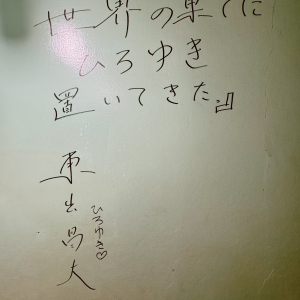 世界の果てに
ひろゆき
置いてきた』
東出昌大
ひろゆき♡